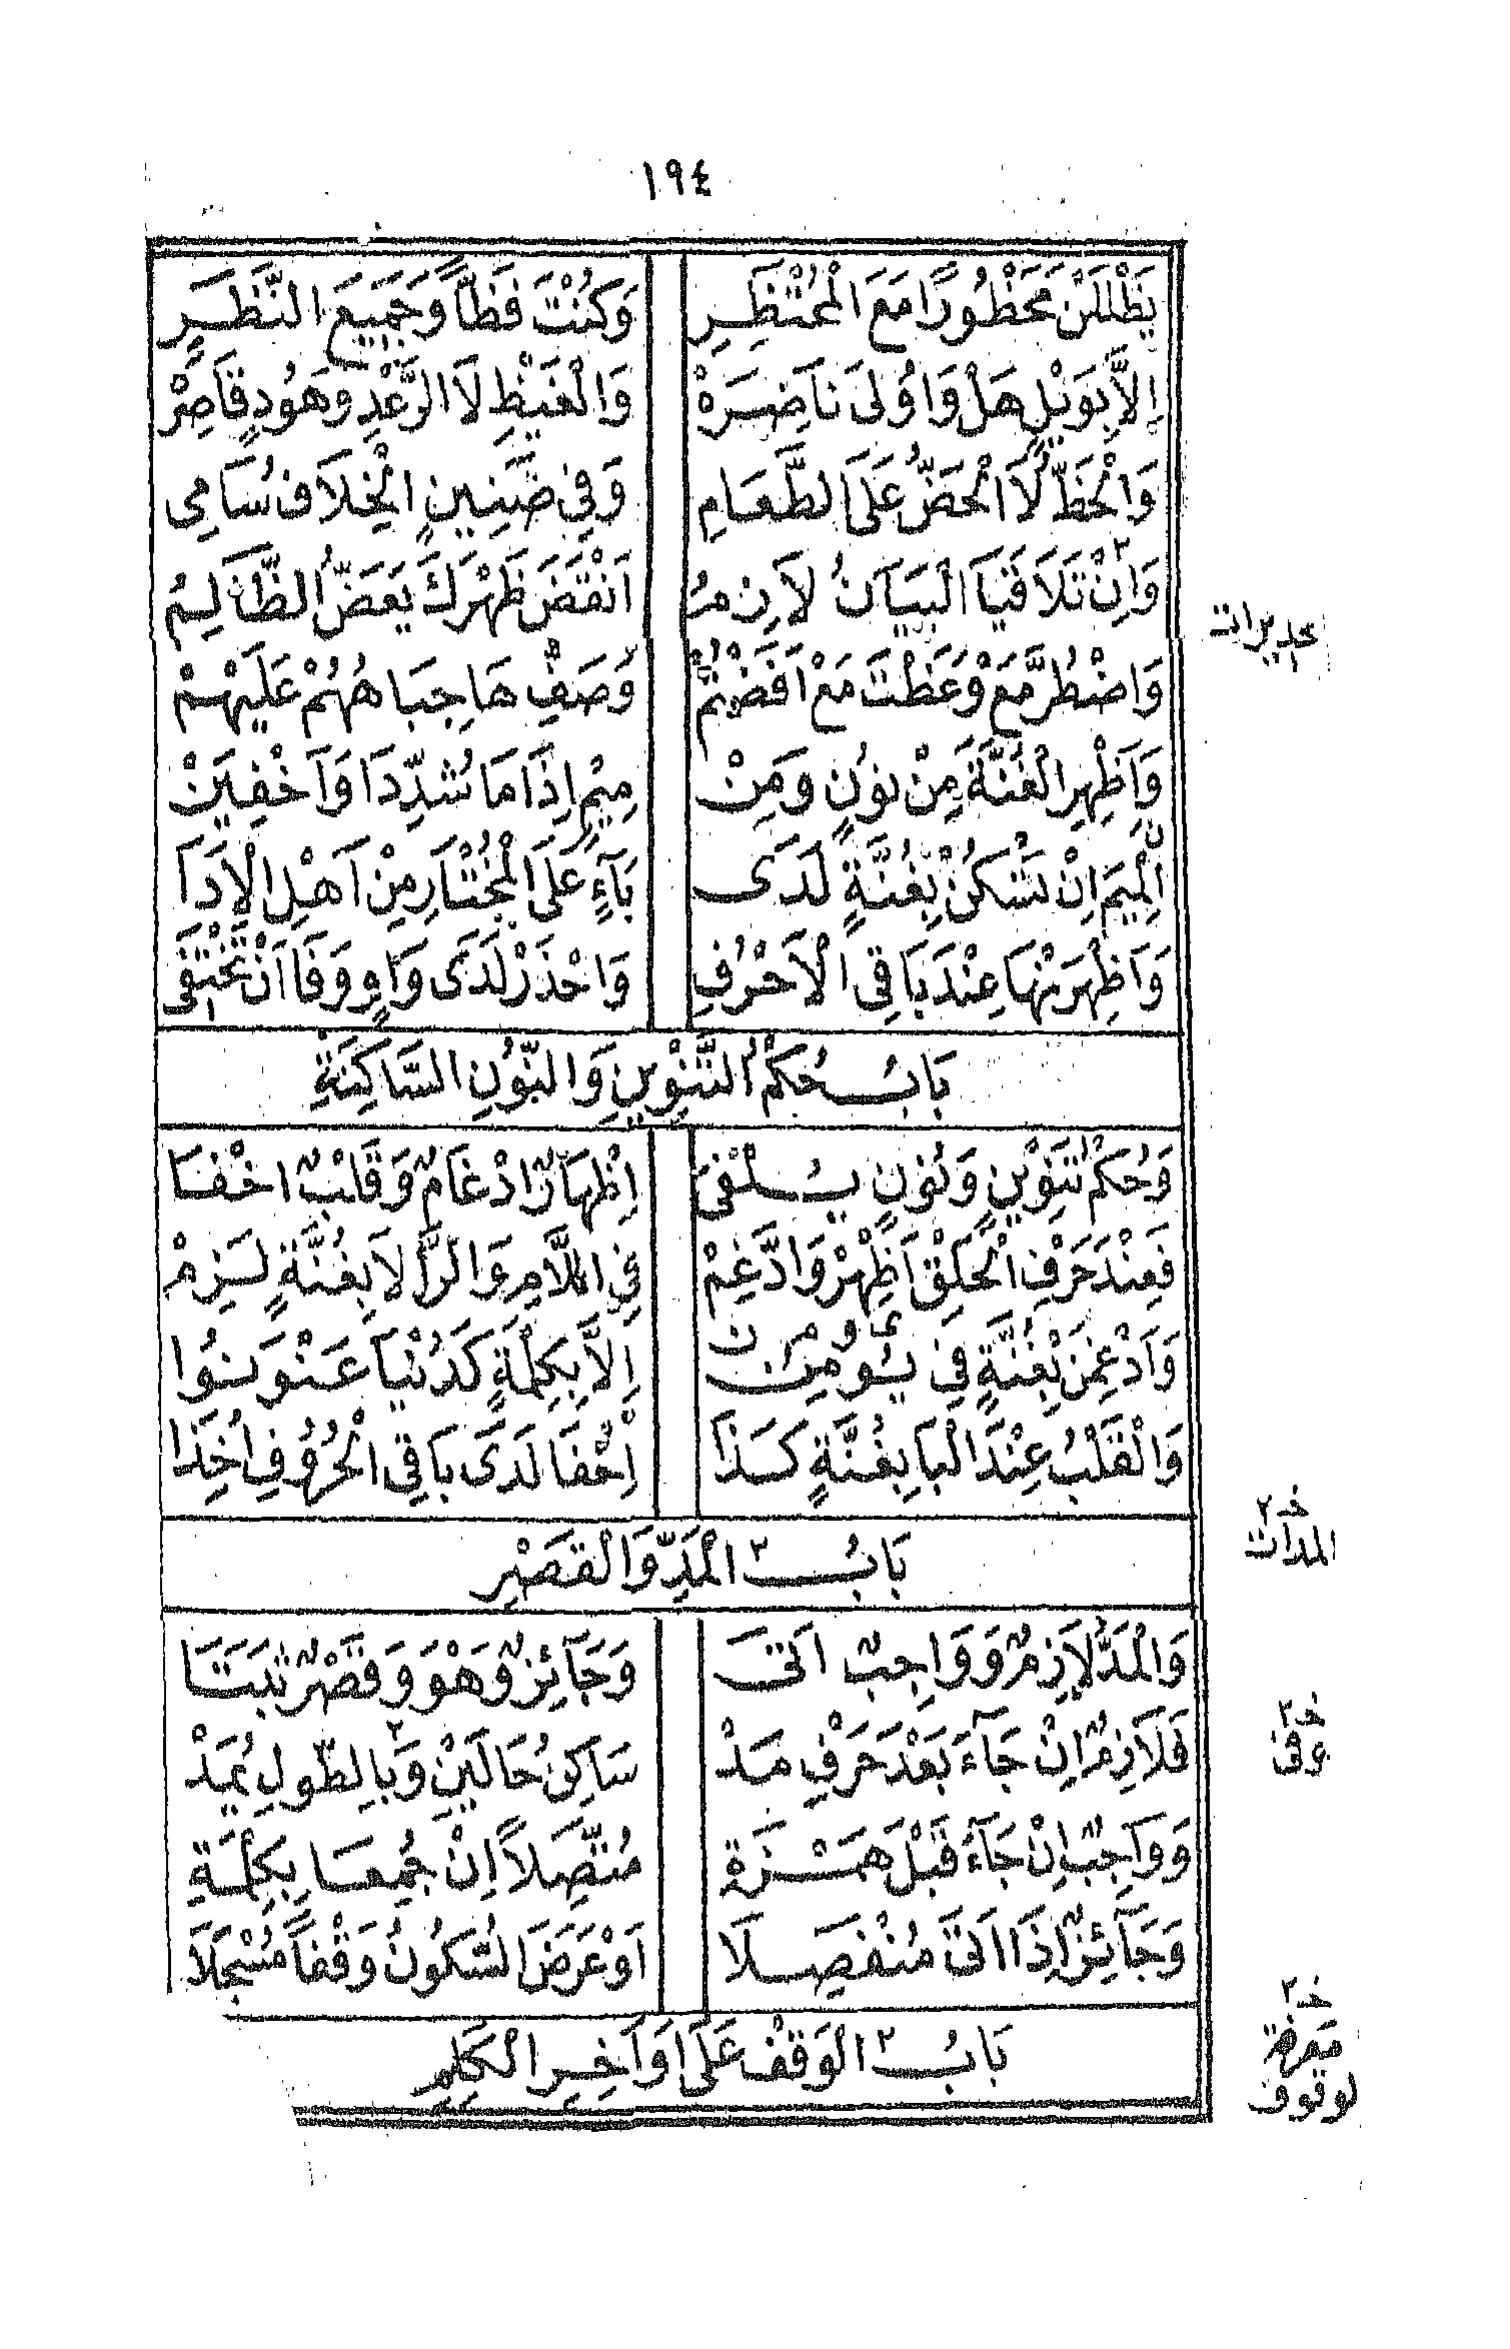 ١٩٤
يَظْلَلْنَ مَحْظُورًا مَعَ الْمُحْتَظِرِ وَكُنْتَ فَظًّا وَجَمِيعَ النَّظَرِ
اِلَّا بِوَيْلٍ هَلْ وَاُولَى نَاضِرَهْ وَالْغَيْظِ لَا الرَّعْدِ وَهُودٍ قَاصِرَهْ
وَالْحَظِّ لَا الْحَضِّ عَلَى الطَّعَامِ وَفِي ضَنِينٍ الْخِلَافُ سَامِي
وَاِنْ تَلَاقَيَا الْبَيَانُ لَازِمُ اَنْقَضَ ظَهْرَكَ يَعَضُّ الظَّالِمُ
وَاضْطُرَّ مَعْ وَعَظْتَ مَعْ اَفَضْتُمْ وَصَفِّ هَا جِبَاهُهُمْ عَلَيْهِمْ
وَاَظْهِرِ الْغُنَّةَ مِنْ نُونٍ وَمِنْ مِيمٍ اِذَا مَا شُدِّدَا وَاَخْفِيَنْ
الْمِيمَ اِنْ تَسْكُنْ بِغُنَّةٍ لَدَى بَآءٍ عَلَى الْمُخْتَارِ مِنْ اَهْلِ الْاَدَا
وَاَظْهِرَنْهَا عِنْدَ بَاقِي الْاَحْرُفِ وَاحْذَرْ لَدَى وَاوٍ وَفَا اَنْ تَخْتَفِي
بَابُ حُكْمُ التَّنْوِينِ وَالنُّونِ السَّاكِنَةِ
وَحُكْمُ تَنْوِينٍ وَنُونٍ يُلْفَى اِظْهَارٌ ادْغَامٌ وَقَلْبٌ اخْفَا
فَعِنْدَ حَرْفِ الْحَلْقِ اَظْهِرْ وَادَّغِمْ فِي اللَّامِ وَالرَّا لَا بِغُنَّةٍ لَزِمْ
وَاَدْغِمَنْ بِغُنَّةٍ فِي يُومِنُ اِلَّا بِكِلْمَةٍ كَدُنْيَا عَنْوَنُوا
وَالْقَلْبُ عِنْدَ الْبَا بِغُنَّةٍ كَذَا اِخْفَا لَدَى بَاقِي الْحُرُوفِ اُخِذَا
بَابُ الْمَدِّ وَالْقَصْرِ
وَالْمَدُّ لَازِمٌ وَوَاجِبٌ اَتَى وَجَآئِزٌ وَهْوَ وَقَصْرٌ ثَبَتَا
فَلَازِمٌ اِنْ جَآءَ بَعْدَ حَرْفِ مَدْ سَاكِنُ حَالَيْنِ وَبِالطُّولِ يُمَدْ
وَوَاجِبٌ اِنْ جَآءَ قَبْلَ هَمْزَةِ مُتَّصِلًا اِنْ جُمِعَا بِكِلْمَةِ
وَجَآئِزٌ اِذَا اَتَى مُنْفَصِلَا اَوْ عَرَضَ السُّكُونُ وَقْفًا مُسْجَلَا
بَابُ الْوَقْفِ عَلَى اَوَاخِرِ الْكَلِمِ
تحذيرات
المدات
معرفة
لوقوف